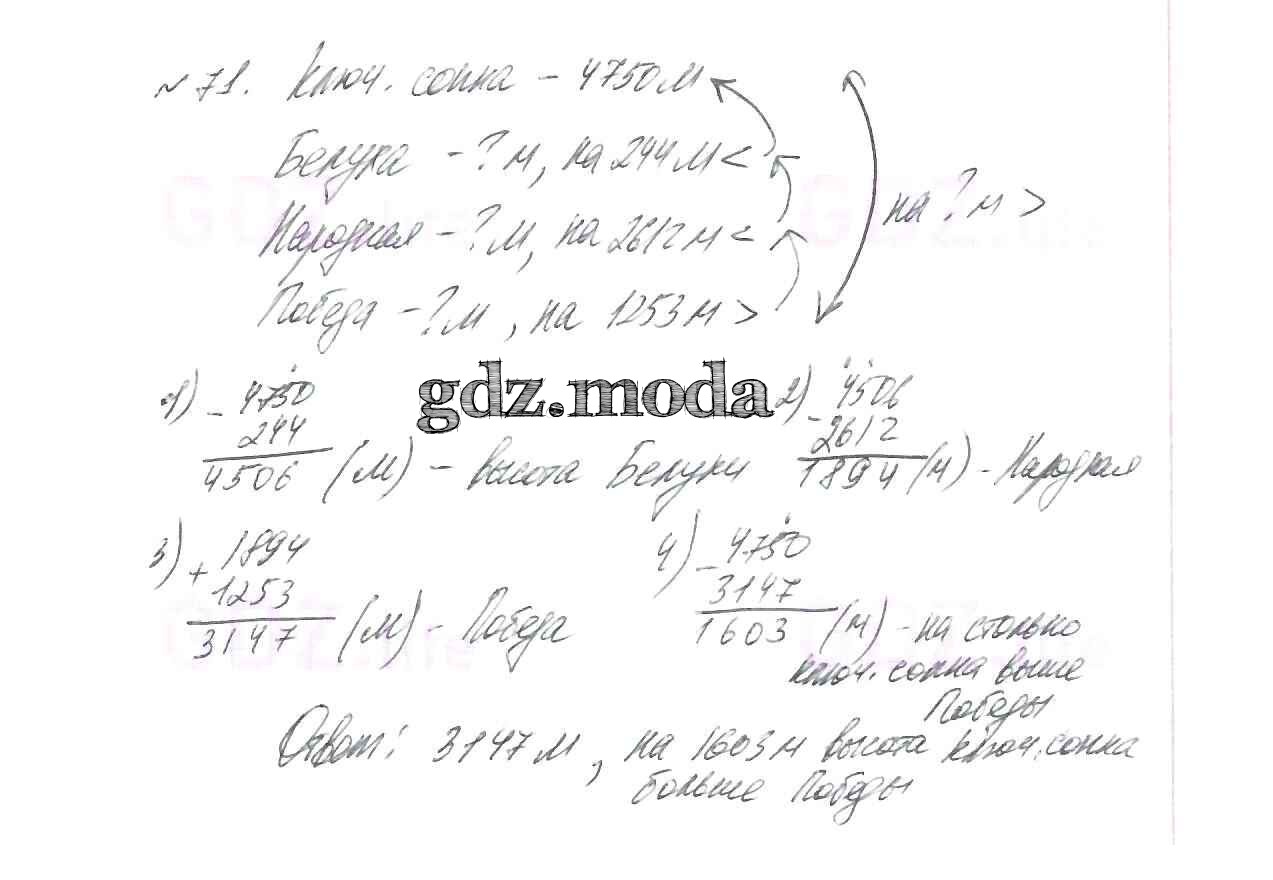 № 71. Ключ. сопка – 4750 м
Белуха – ? м, на 244 м <
Народная – ? м, на 2612 м <
на ? м >
Победа – ? м, на 1253 м >
gdz.moda
1) – 4750
244
4506 (м) – высота Белухи
2) – 4506
2612
1894 (м) – Народная
3) + 1894
1253
3147 (м) – Победа
4) – 4750
3147
1603 (м) – на столько
ключ. сопка выше
Победы
Ответ: 3147 м, на 1603 м высота ключ. сопка
больше Победы